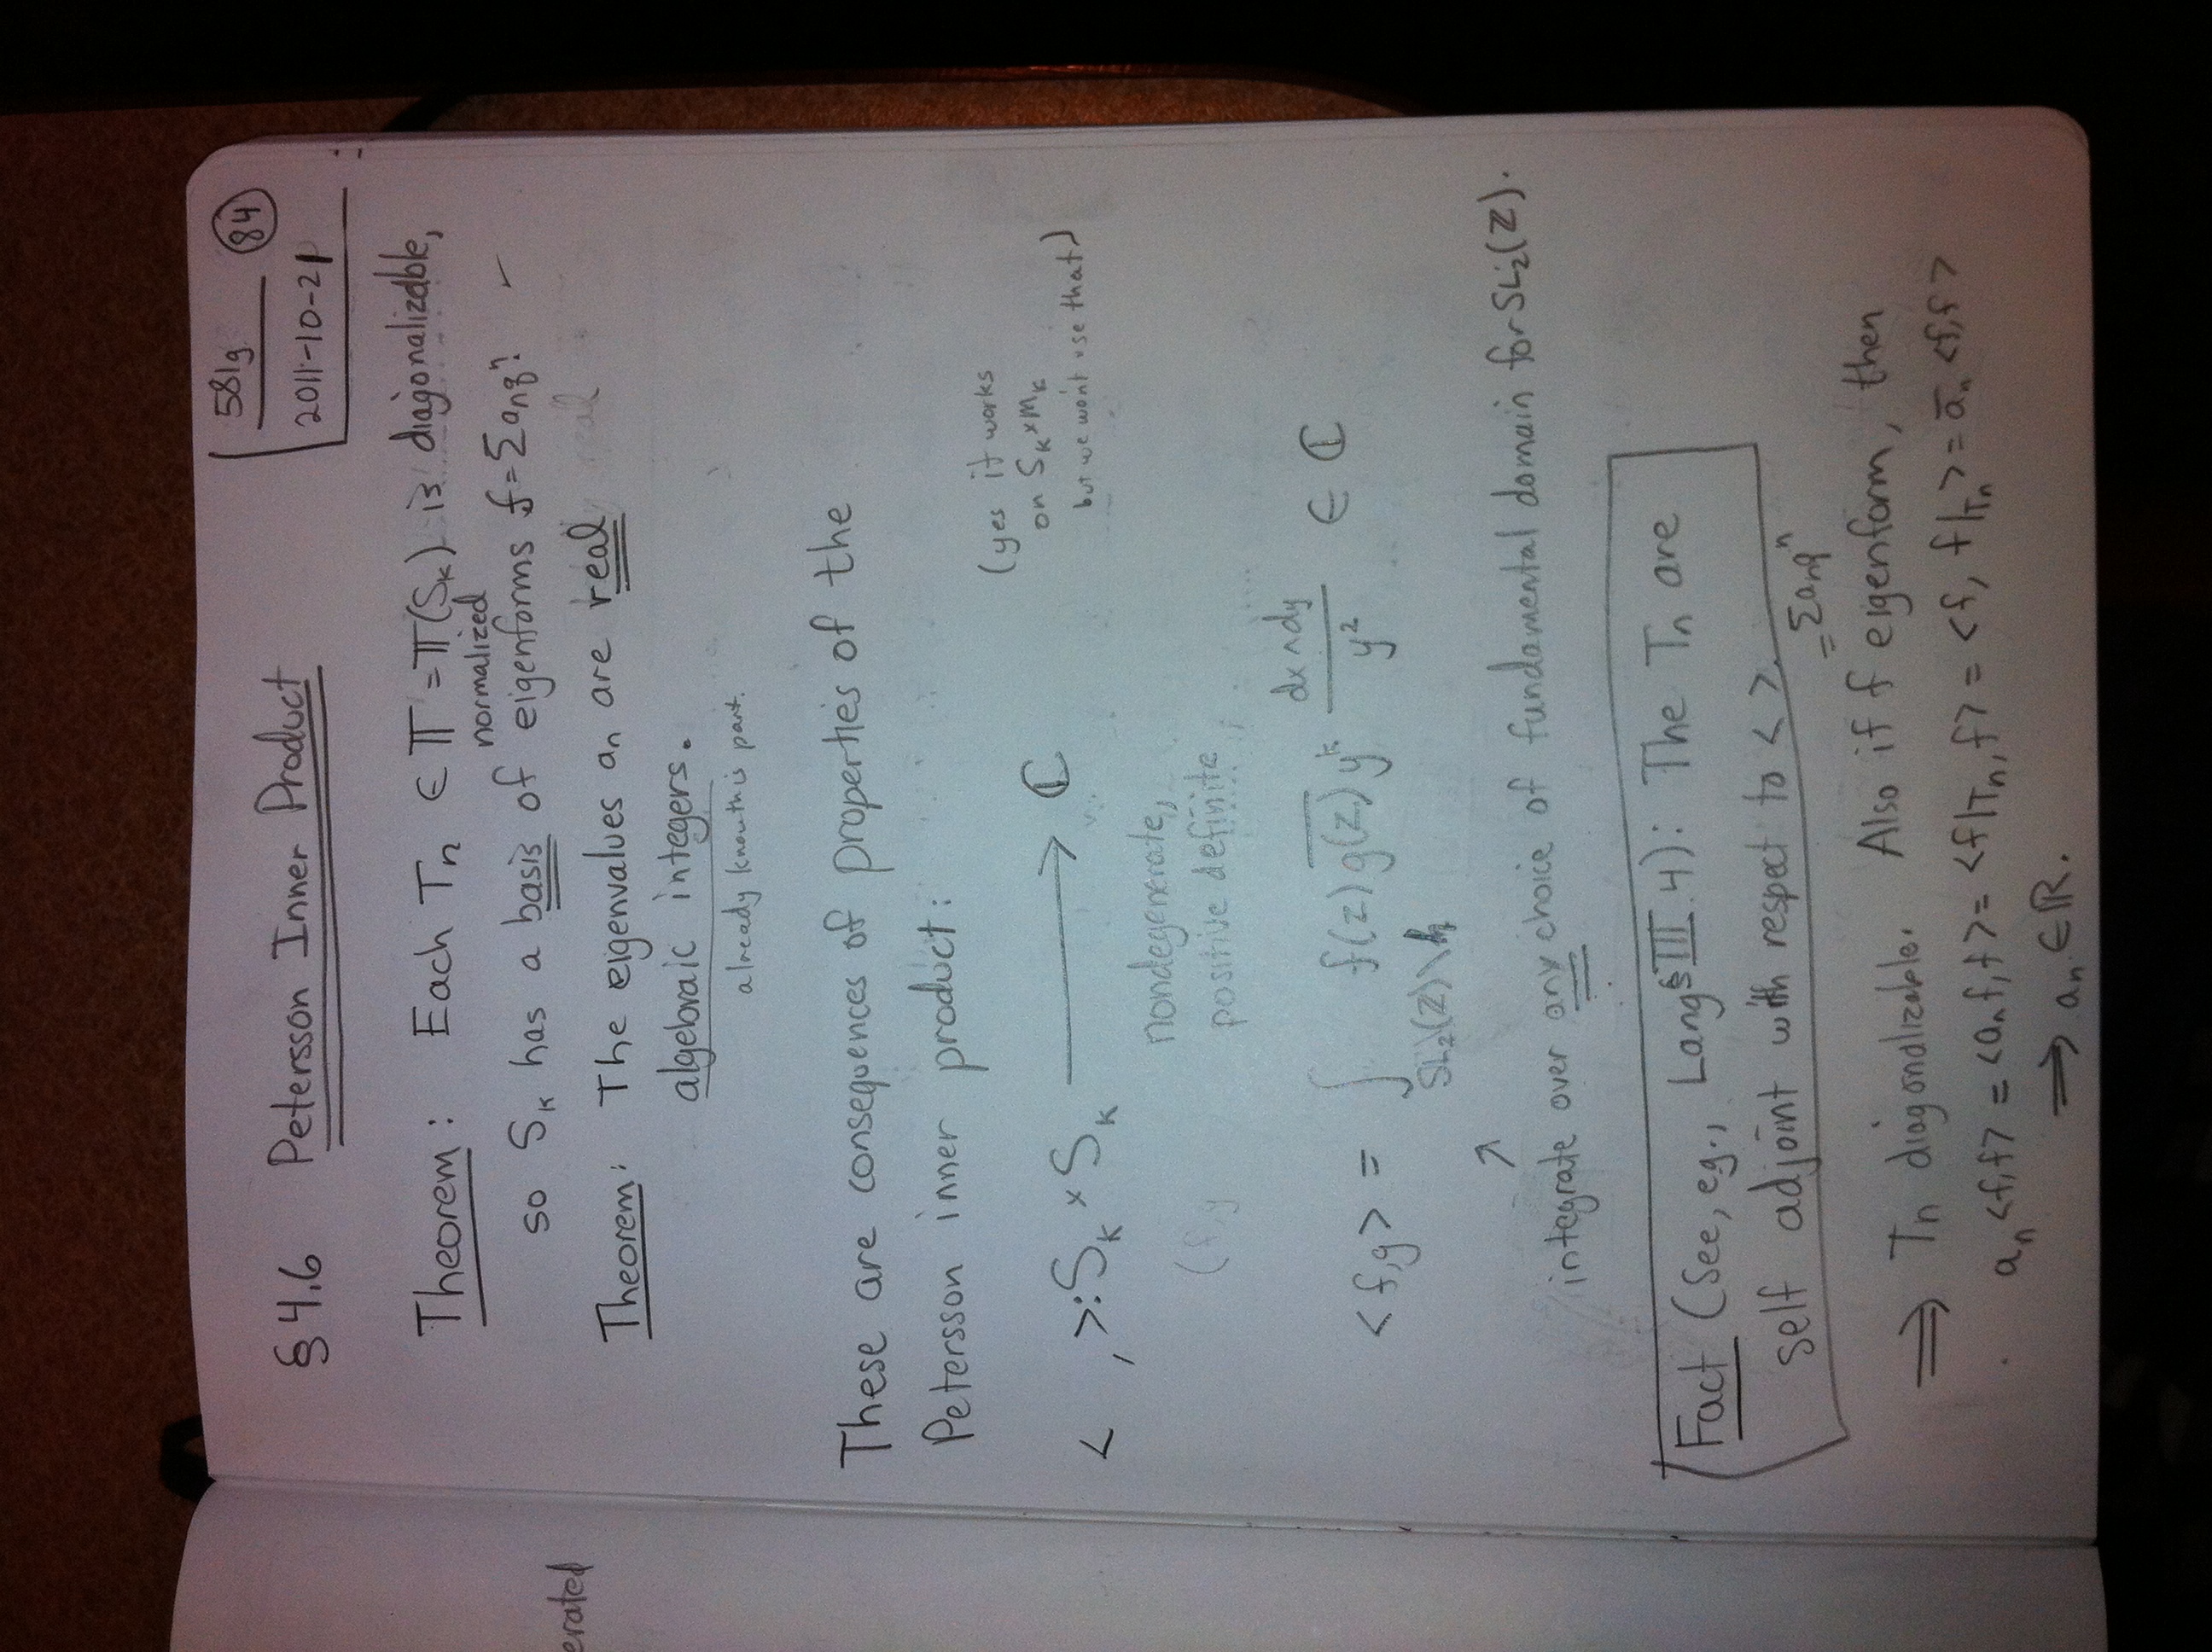 581g 84
2011-10-21
§ 4.6 Petersson Inner Product
Theorem: Each Tn ∈ 𝕋 = 𝕋(Sk) is diagonalizable,
normalized
so Sk has a basis of eigenforms f = Σ anqⁿ.
Theorem: The eigenvalues an are real
algebraic integers.
already know this part.
These are consequences of properties of the
Petersson inner product:
(yes it works
on Sk × Mk
but we won't use that)
< , >: Sk × Sk ⟶ ℂ
nondegenerate,
positive definite
<f,g> = ∫ SL₂(Z)\h f(z) g(z) yᵏ dx∧dy / y² ∈ ℂ
↗
integrate over any choice of fundamental domain for SL₂(Z).
Fact (See, e.g., Lang § III.4): The Tn are
self adjoint with respect to < >
= Σanqⁿ
⟹ Tn diagonalizable. Also if f eigenform, then
an <f,f> = <an f,f> = <f|Tn, f> = <f, f|Tn> = a̅n <f,f>
⟹ an ∈ ℝ.
erated